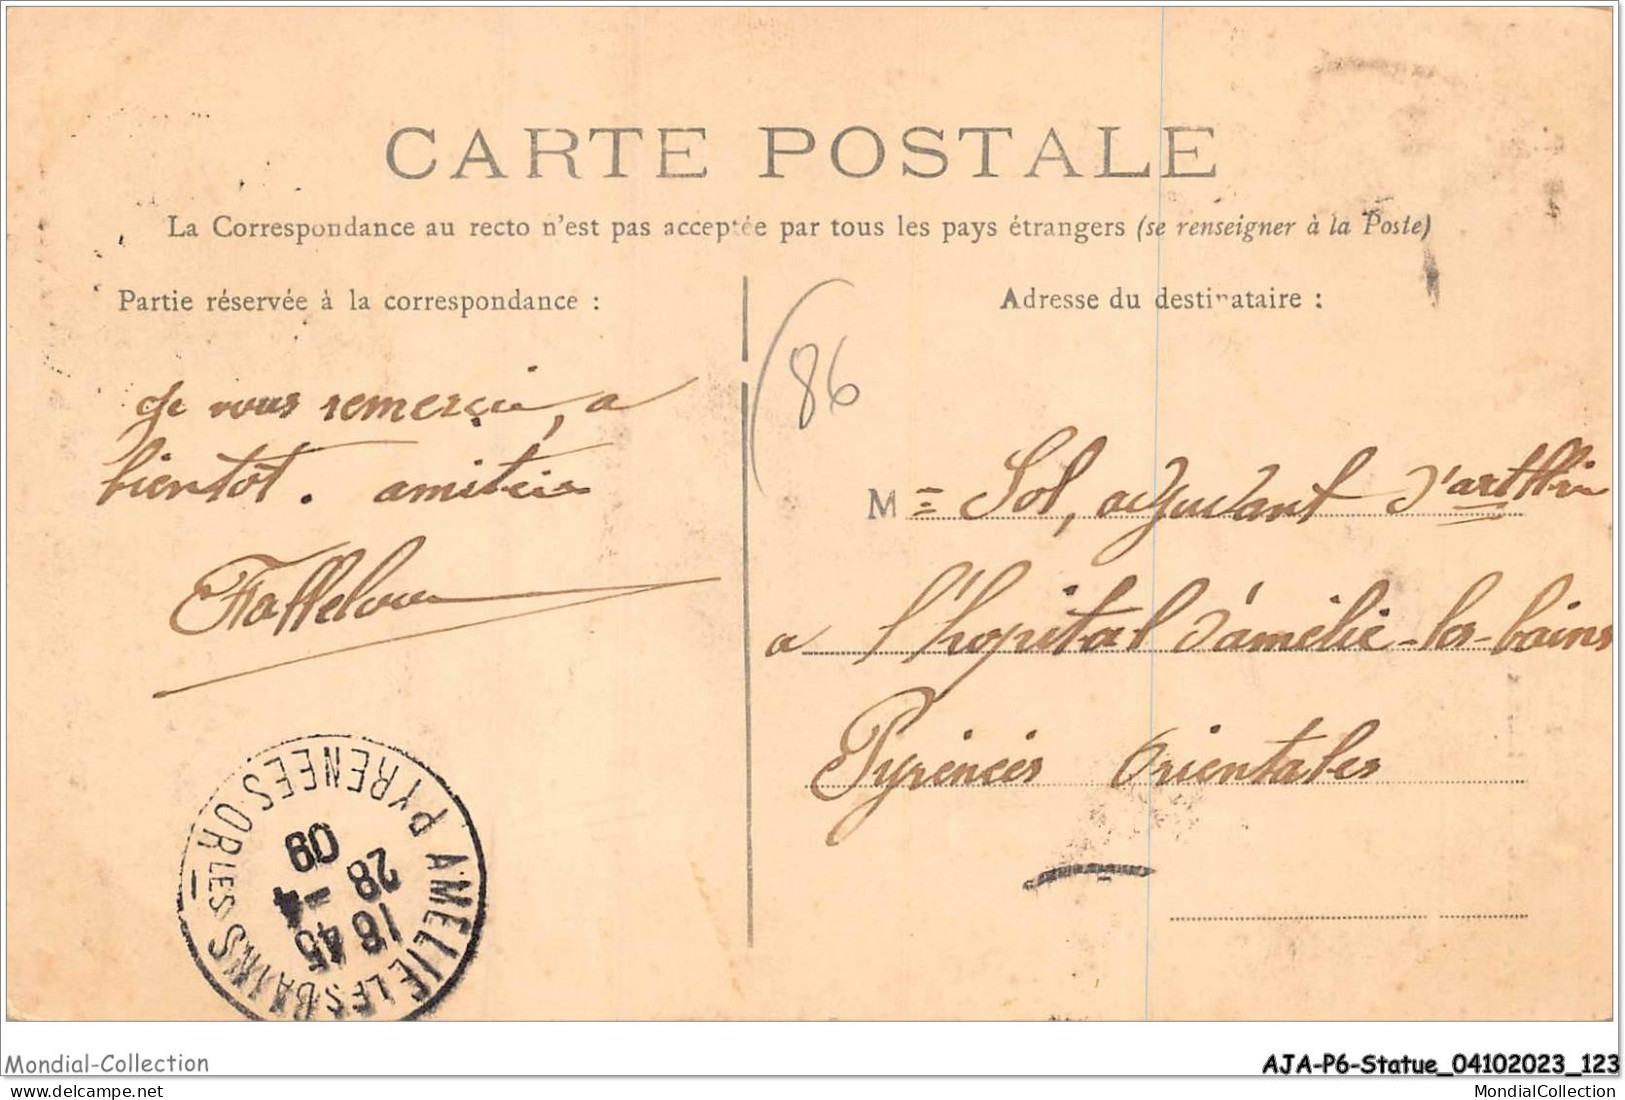 CARTE POSTALE
La Correspondance au recto n'est pas acceptée par tous les pays étrangers (se renseigner à la Poste)
Partie réservée à la correspondance :
Adresse du destinataire :
86
Je vous remercie, a
bientôt. amitiés
M= Sol, adjudant d'art
a l'hopital d'amélie-les-bains
Pyrénées Orientales
AMELIE LES BAINS LES
PYRENEES-ORLES
18 45
28 -4
09
Mondial-Collection
AJA-P6-Statue_04102023_123
www.delcampe.net
MondialCollection